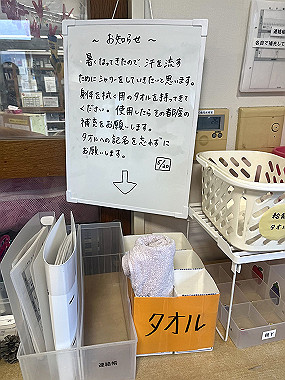 ~ お知らせ ~
暑くなってきたので、汗を流す
ためにシャワーをしていきたいと思います。
身体を拭く用のタオルを持ってきて
ください。使用したらその都度の
補充をお願いします。
タオルへの記名を忘れずに
お願いします。
タオル
連絡帳
連絡帳
名前で補充して
タオ